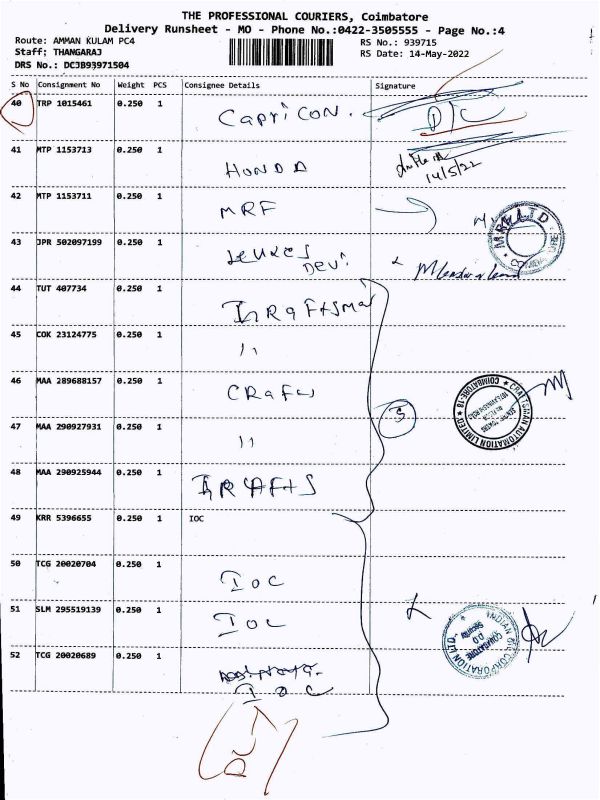 THE PROFESSIONAL COURIERS, Coimbatore
Delivery Runsheet - MO - Phone No.:0422-3505555 - Page No.:4
Route: AMMAN KULAM PC4
RS No.: 939715
Staff: THANGARAJ
RS Date: 14-May-2022
DRS No.: DCJB93971504
S No Consignment No Weight PCS Consignee Details Signature
40 TRP 1015461 0.250 1 CapriCON. D/C
14/5/22
41 MTP 1153713 0.250 1 HONDA
42 MTP 1153711 0.250 1 MRF
MRF LTD
43 JPR 502097199 0.250 1
Devi
44 TUT 407734 0.250 1
45 COK 23124775 0.250 1 11
46 MAA 289688157 0.250 1 CRafts
CRAFTSMAN AUTOMATION LIMITED
COIMBATORE-18
47 MAA 290927931 0.250 1 11
5
48 MAA 290925944 0.250 1
49 KRR 5396655 0.250 1 IOC
50 TCG 20020704 0.250 1 IOC
51 SLM 295519139 0.250 1 IOC
INDIAN OIL CORPORATION LTD
Security
D.O
COIMBATORE
52 TCG 20020689 0.250 1
IOC